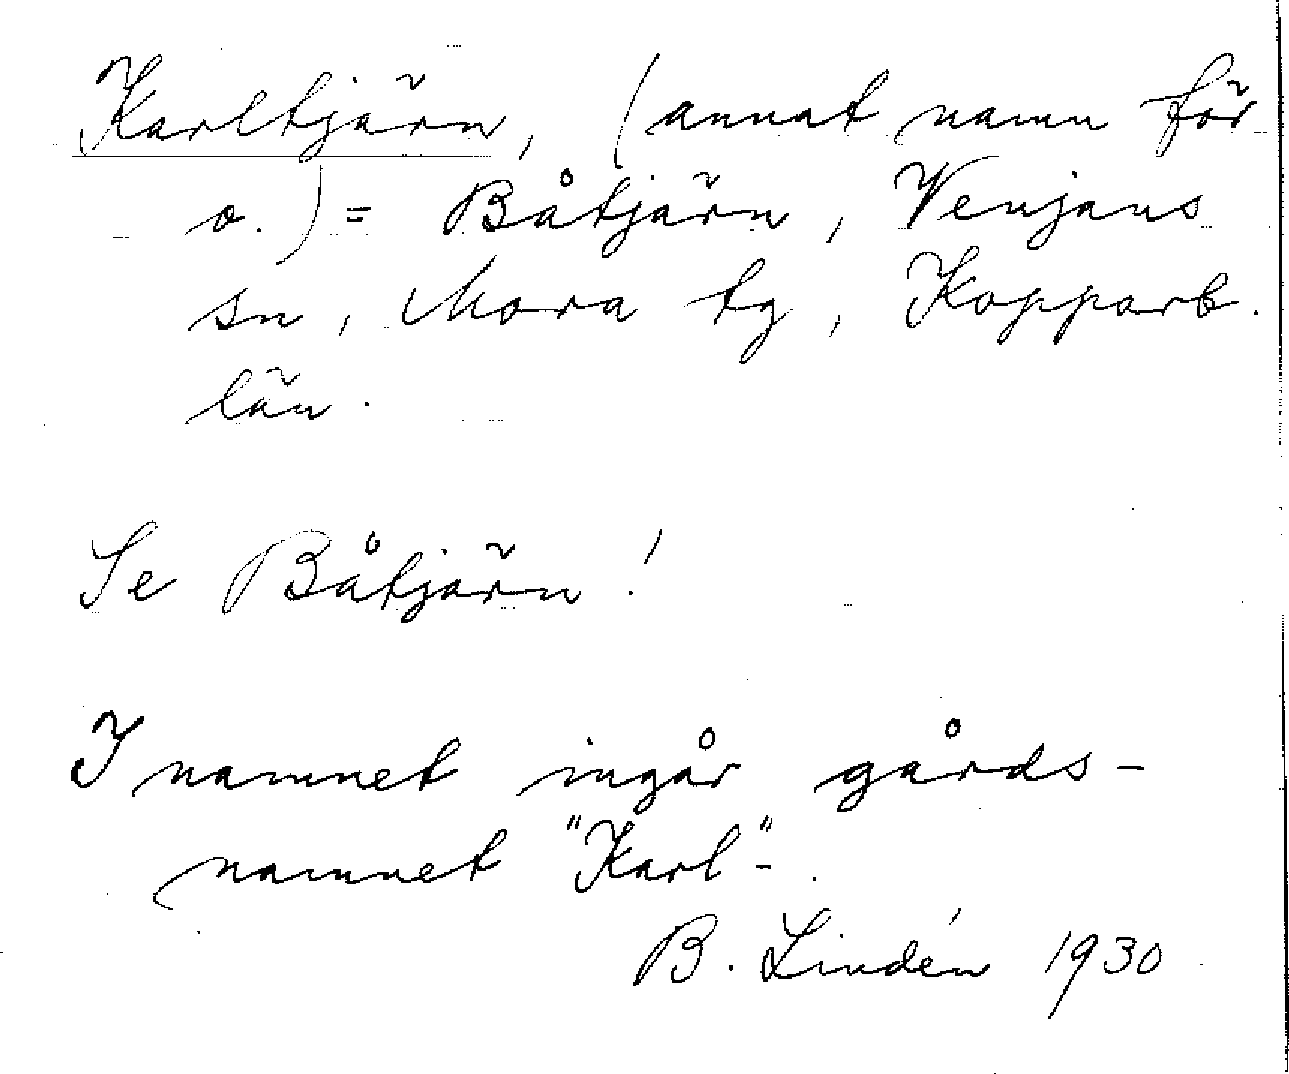 Karltjärn, (annat namn för
o.) = Båtjärn, Venjans
sn, Mora tg, Kopparb.
län.
Se Båtjärn!
I namnet ingår gårds-
namnet "Karl"-.
B. Lindén 1930